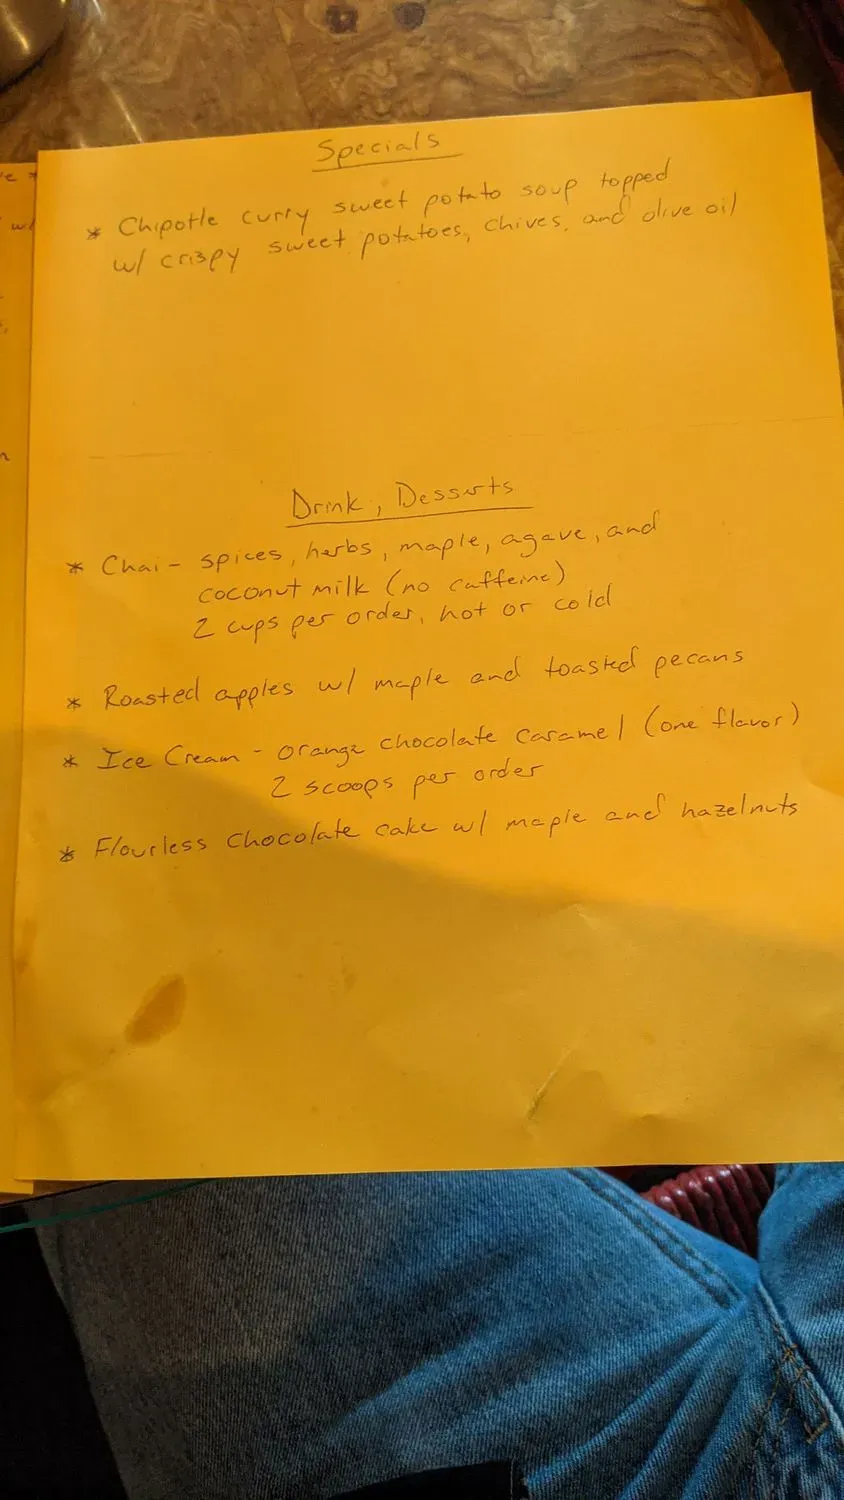 Specials
* Chipotle curry sweet potato soup topped
w/ crispy sweet potatoes, chives, and olive oil
Drink, Desserts
* Chai - spices, herbs, maple, agave, and
coconut milk (no caffeine)
2 cups per order, hot or cold
* Roasted apples w/ maple and toasted pecans
* Ice Cream - orange chocolate caramel (one flavor)
2 scoops per order
* Flourless chocolate cake w/ maple and hazelnuts